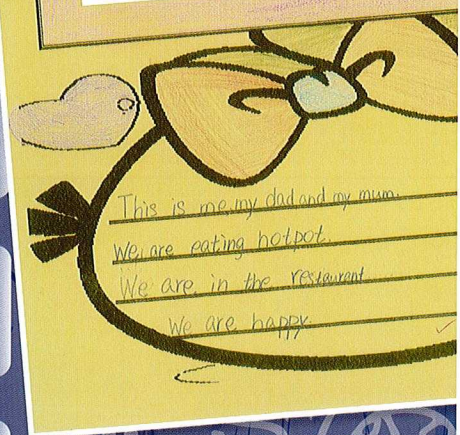 This is me, my dad and my mum.
We are eating hotpot.
We are in the restaurant
We are happy.